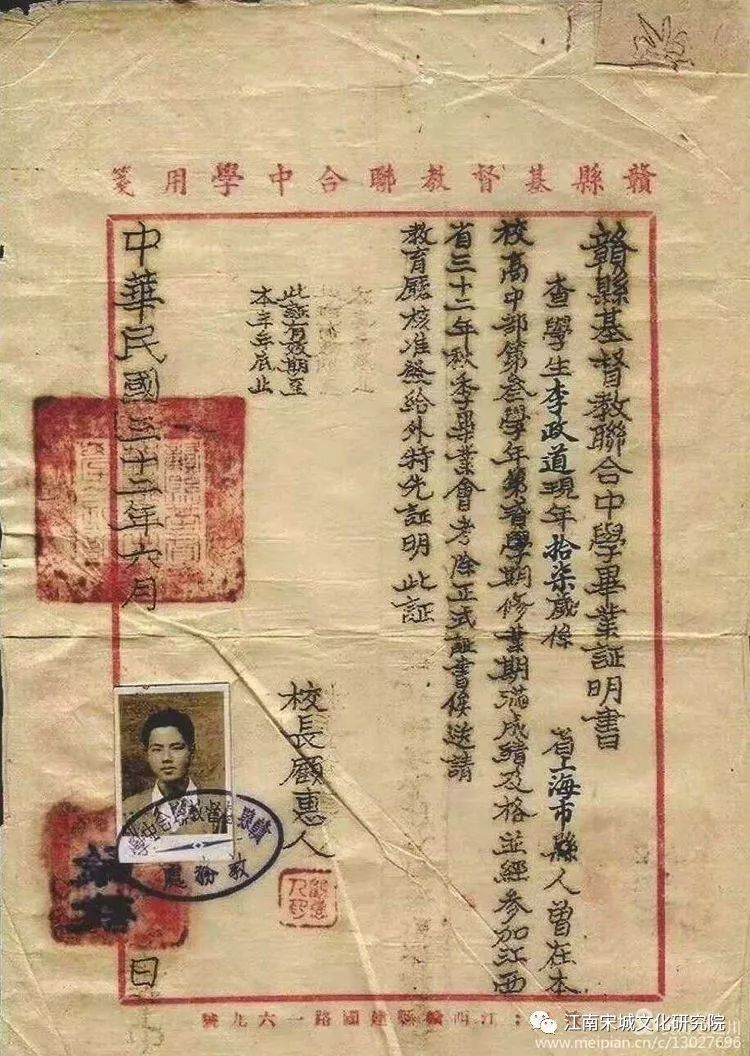 贛縣基督教聯合中學用箋
贛縣基督教聯合中學畢業証明書
查學生李政道現年拾柒歲係　省上海市縣人曾在本
校高中部第叁學年第壹學期修業期滿成績及格並經參加江西
省三十二年秋季畢業會考除正式証書俟送請
教育廳核准發給外特先証明此証
此証有效期至
本年年底止
校長顧惠人
中華民國三十二年六月　日
贛縣基督教聯合中學
教務處
江西贛縣建國路一六九號
江南宋城文化研究院
www.meipian.cn/c/13027696